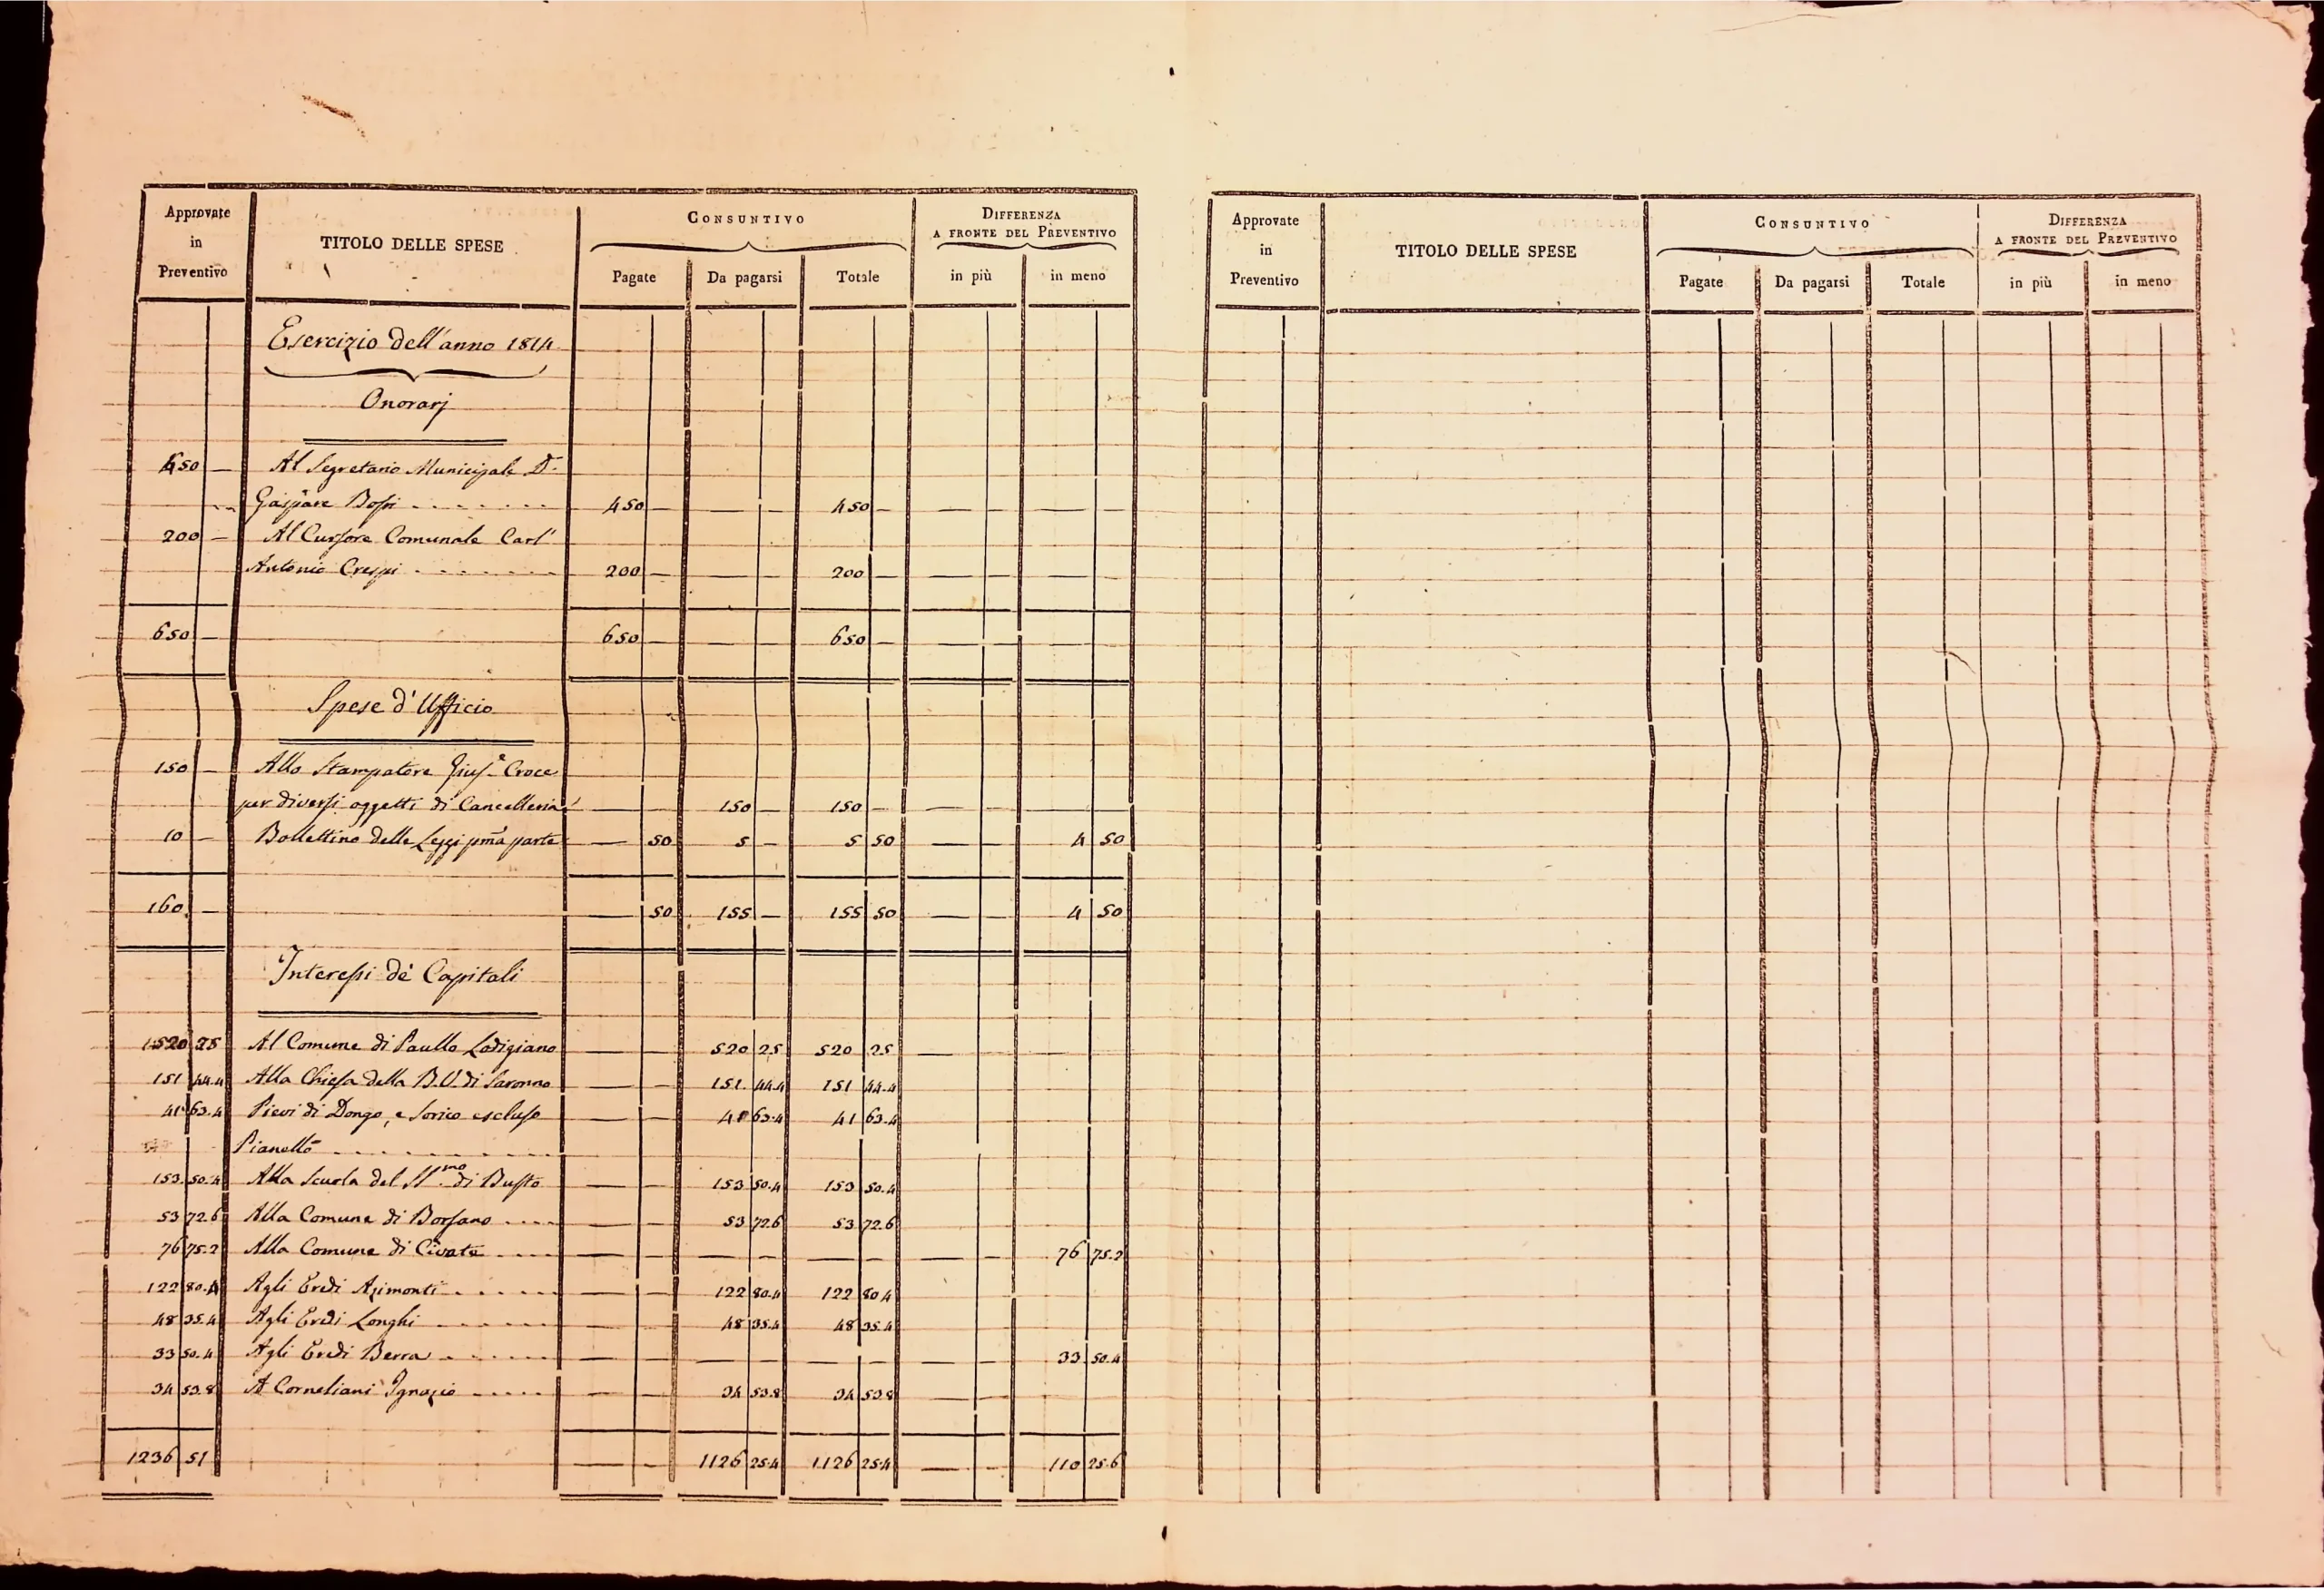 Approvate in Preventivo | TITOLO DELLE SPESE | CONSUNTIVO | DIFFERENZA A FRONTE DEL PREVENTIVO
Pagate | Da pagarsi | Totale | in più | in meno
Esercizio dell'anno 1814
Onorarj
450 — Al Segretario Municipale D.
Gaspare Bossi . . . . . . . 450 — — — 450 — — — — —
200 — Al Cursore Comunale Carl'
Antonio Crespi . . . . . . . 200 — — — 200 — — — — —
650 — 650 — — — 650 — — — — —
Spese d'Ufficio
150 — Allo Stampatore Gius.e Croce
per diversi oggetti di Cancelleria — — 150 — 150 — — — — —
10 — Bollettino delle Leggi pma parte — 50 5 — 5 50 — — 4 50
160 — — 50 155 — 155 50 — — 4 50
Interessi de' Capitali
520 25 Al Comune di Paullo Lodigiano — — 520 25 520 25 — — — —
151 44.4 Alla Chiesa della B.V. di Saronno — — 151 44.4 151 44.4
41 63.4 Pievi di Dongo, e Sorico escluso — — 41 63.4 41 63.4
Pianello . . . . . . . . . .
153 50.4 Alla Scuola del SS.mo di Busto — — 153 50.4 153 50.4
53 72.6 Alla Comune di Borsano . . . . — — 53 72.6 53 72.6
76 75.2 Alla Comune di Civate . . . . — — — — — — — — 76 75.2
122 80.4 Agli Eredi Azimonti . . . . . . — — 122 80.4 122 80.4
48 35.4 Agli Eredi Longhi . . . . . . . — — 48 35.4 48 35.4
33 50.4 Agli Eredi Berra . . . . . . — — — — — — — — 33 50.4
34 53.8 A Corneliani Ignazio . . . . . — — 34 53.8 34 53.8 — — — —
1236 51 — — 1126 25.4 1126 25.4 — — 110 25.6
Approvate in Preventivo | TITOLO DELLE SPESE | CONSUNTIVO | DIFFERENZA A FRONTE DEL PREVENTIVO
Pagate | Da pagarsi | Totale | in più | in meno